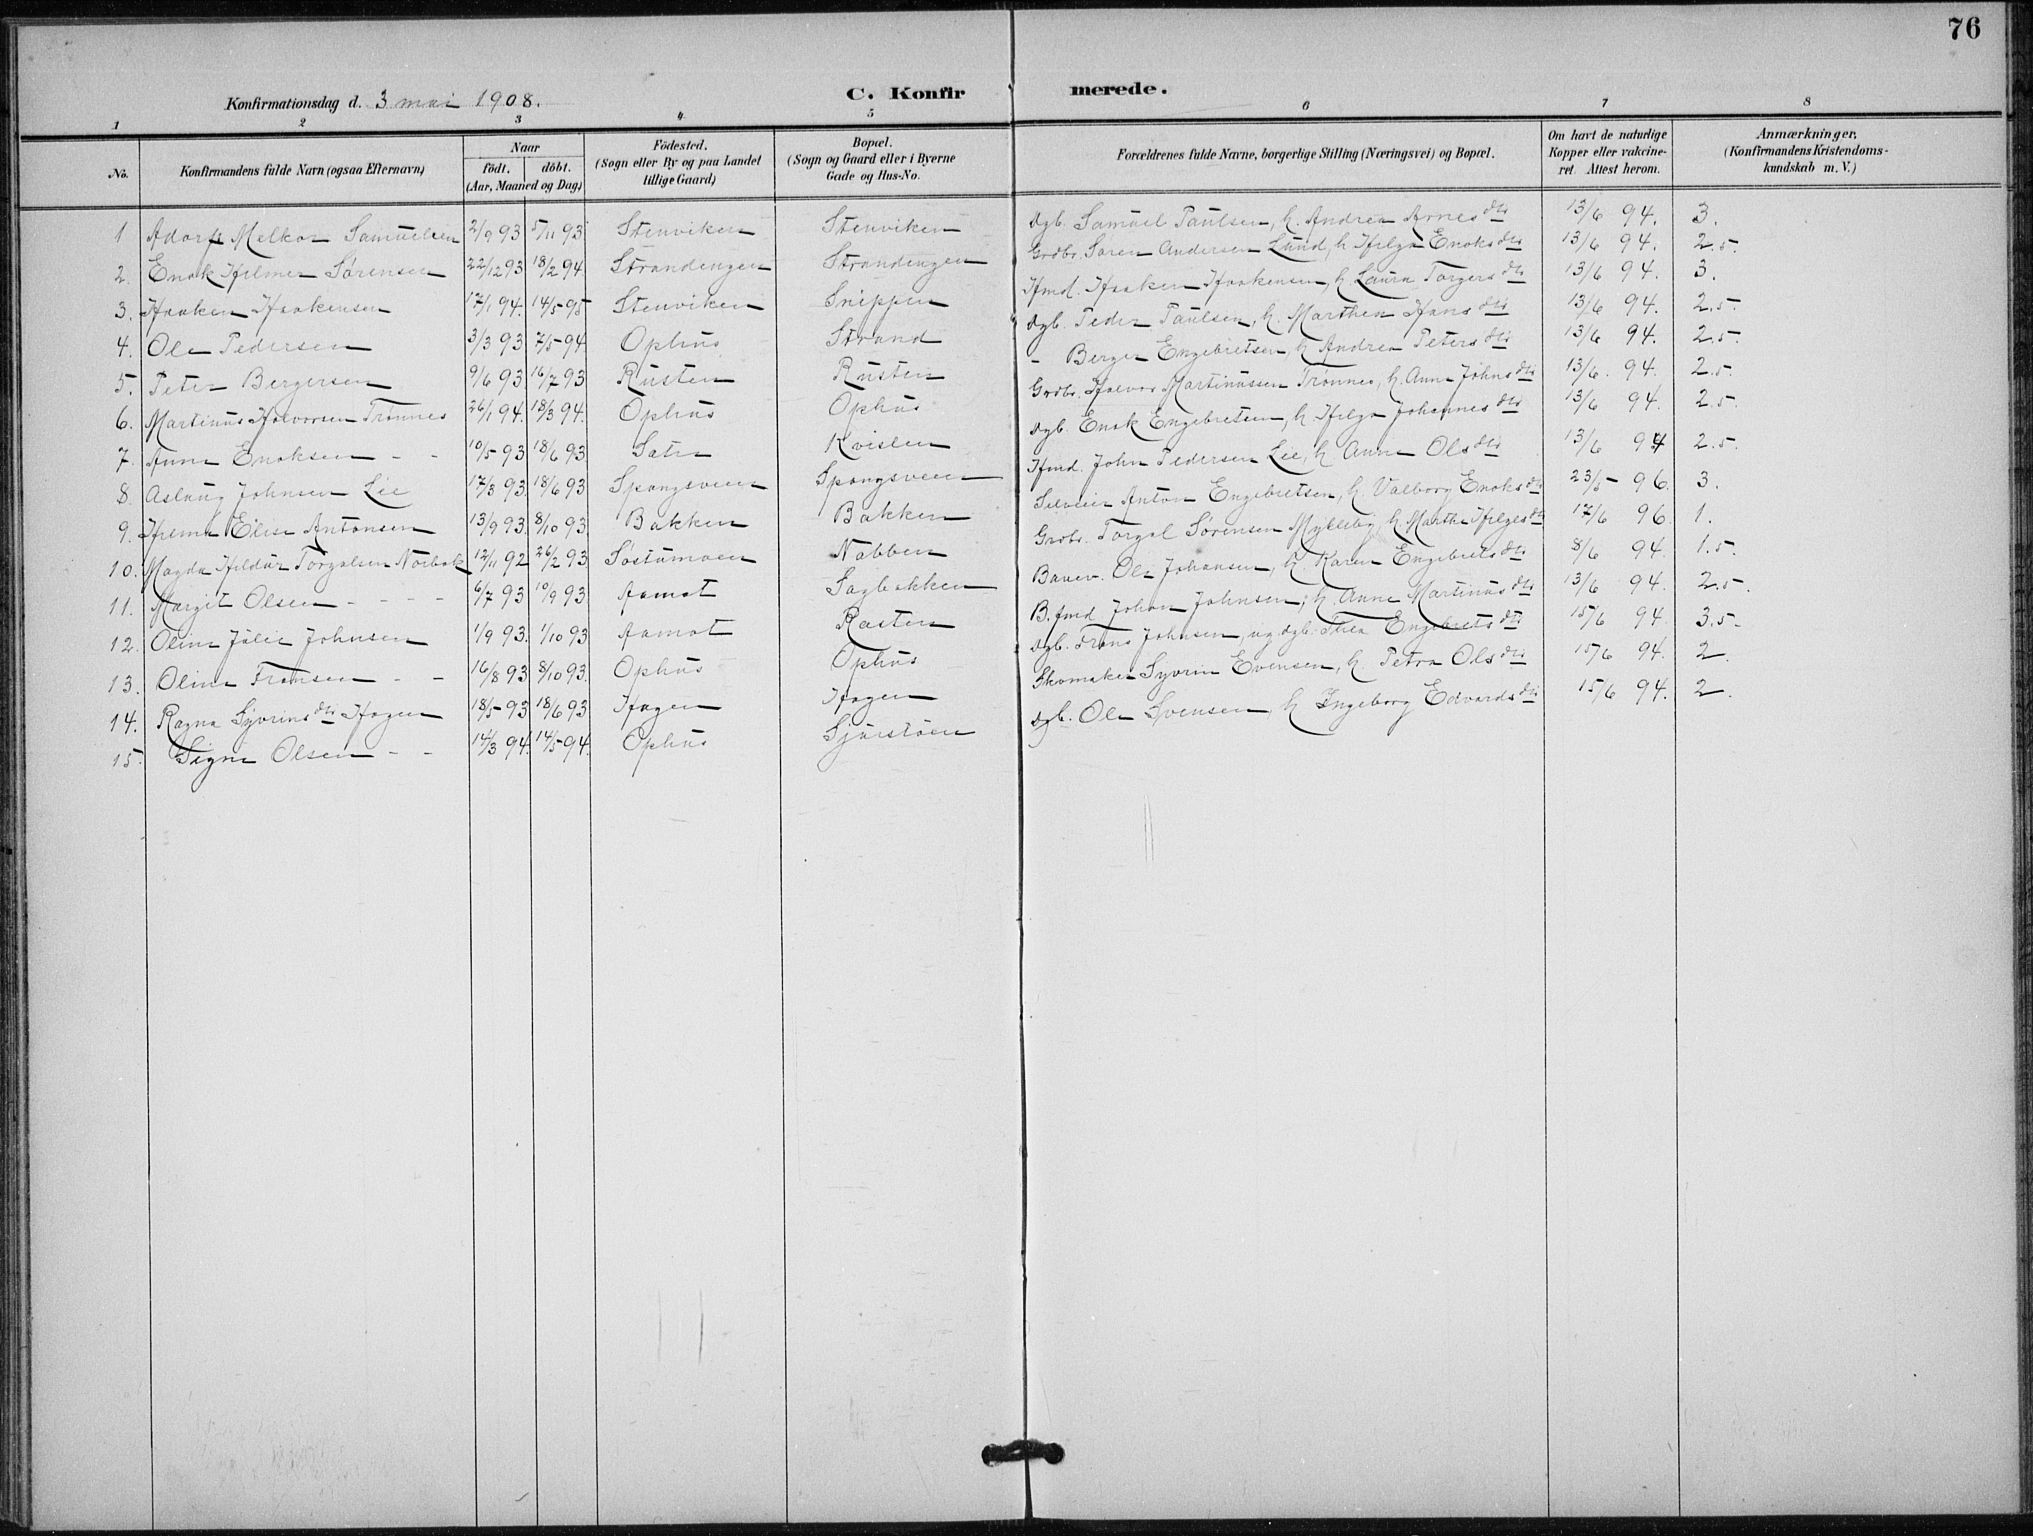 76
Konfirmationsdag d. 3 mai 1908.
C. Konfirmerede.
1 2 3 4 5 6 7 8
No. Konfirmandens fulde Navn (ogsaa Efternavn) Naar født. døbt. (Aar, Maaned og Dag) Fødested. (Sogn eller By og paa Landet tillige Gaard) Bopæl. (Sogn og Gaard eller i Byerne Gade og Hus-No. Forældrenes fulde Navne, borgerlige Stilling (Næringsvei) og Bopæl. Om havt de naturlige Kopper eller vakcineret. Attest herom. Anmærkninger. (Konfirmandens Kristendomskundskab m. V.)
1 Adorf Melkor Samuelsen 2/9 93 5/11 93 Stenviken Stenviken Dgb. Samuel Paulsen, h. Andrea Arnesdtr 13/6 94. 3.
2. Enok Hilmer Sørensen 22/12 93 18/2 94 Strandengen Strandengen Grdbr. Søren Andersen Lund, h. Helga Enoksdtr 13/6 94. 2.5.
3. Haaken Haakensen 17/1 94. 14/5 95 Stenviken Snippen Hmd. Haaken Haakensen, h. Laura Torgersdtr 13/6 94. 3.
4. Ole Pedersen 3/3 93 7/5 94 Ophus Strand Dgb. Peder Paulsen, h. Marthea Hansdtr 13/6 94. 2.5.
5. Peter Bergersen 9/6 93 16/7 93 Rusten Rusten - Berger Engebretsen, h. Andrea Petersdtr 13/6 94. 2.5.
6. Martinus Halvorsen Trønnes 26/1 94. 18/3 94. Ophus Ophus Grdbr. Halvor Martinussen Trønnes, h. Anne Johnsdtr 13/6. 94. 2.5.
7. Anna Enoksen - - 10/5 93 18/6 93 Satre Kvislen Dgb. Enok Engebretsen, h. Helga Johannesdtr 13/6 94. 2.5.
8. Aslaug Johnsen Lie 17/3 93 18/6 93 Spangsveen Spangsveen Hmd. John Pedersen Lie, h. Anne Olsdtr 13/6 94 2.5.
9. Helma Elise Antonsen 13/9 93. 8/10 93 Bakken Bakken Selveier Anton Engebretsen, h. Valborg Enoksdtr 23/5 96. 3.
10. Magda Hildur Torgalsen Norbak 12/11 92 26/2 93 Søstumoen Nabben Grdbr. Torgal Sørensen Mykleby, h. Marthe Helgesdtr 17/6 96. 1.
11. Margit Olsen - - - - 6/7 93 10/9 93 Aamot Sagbakken Banev. Ole Johansen, h. Karen Engebretsdtr 8/6 94. 1.5.
12. Oline Julie Johnsen 1/9 93. 1/10 93 Aamot Rasten B.fmd Johan Johnsen, h. Anne Martinusdtr 13/6 94. 2.5.
13. Olina Fransen - - 16/8 93 8/10 93. Ophus Ophus Dgb. Frans Johnsen, ug. dgb. Thea Engebretsdtr 15/6 94. 3.5.
14. Ragna Syvrinsdtr Hagen 18/5 93 18/6 93 Hagen Hagen Skomaker Syvrin Evensen, h. Petra Olsdtr 15/6 94. 2.
15. Signe Olsen - - 14/3 94. 14/5 94. Ophus Sjurstøen Dgb. Ole Svensen, h. Ingeborg Edvardsdtr 15/6 94. 2.